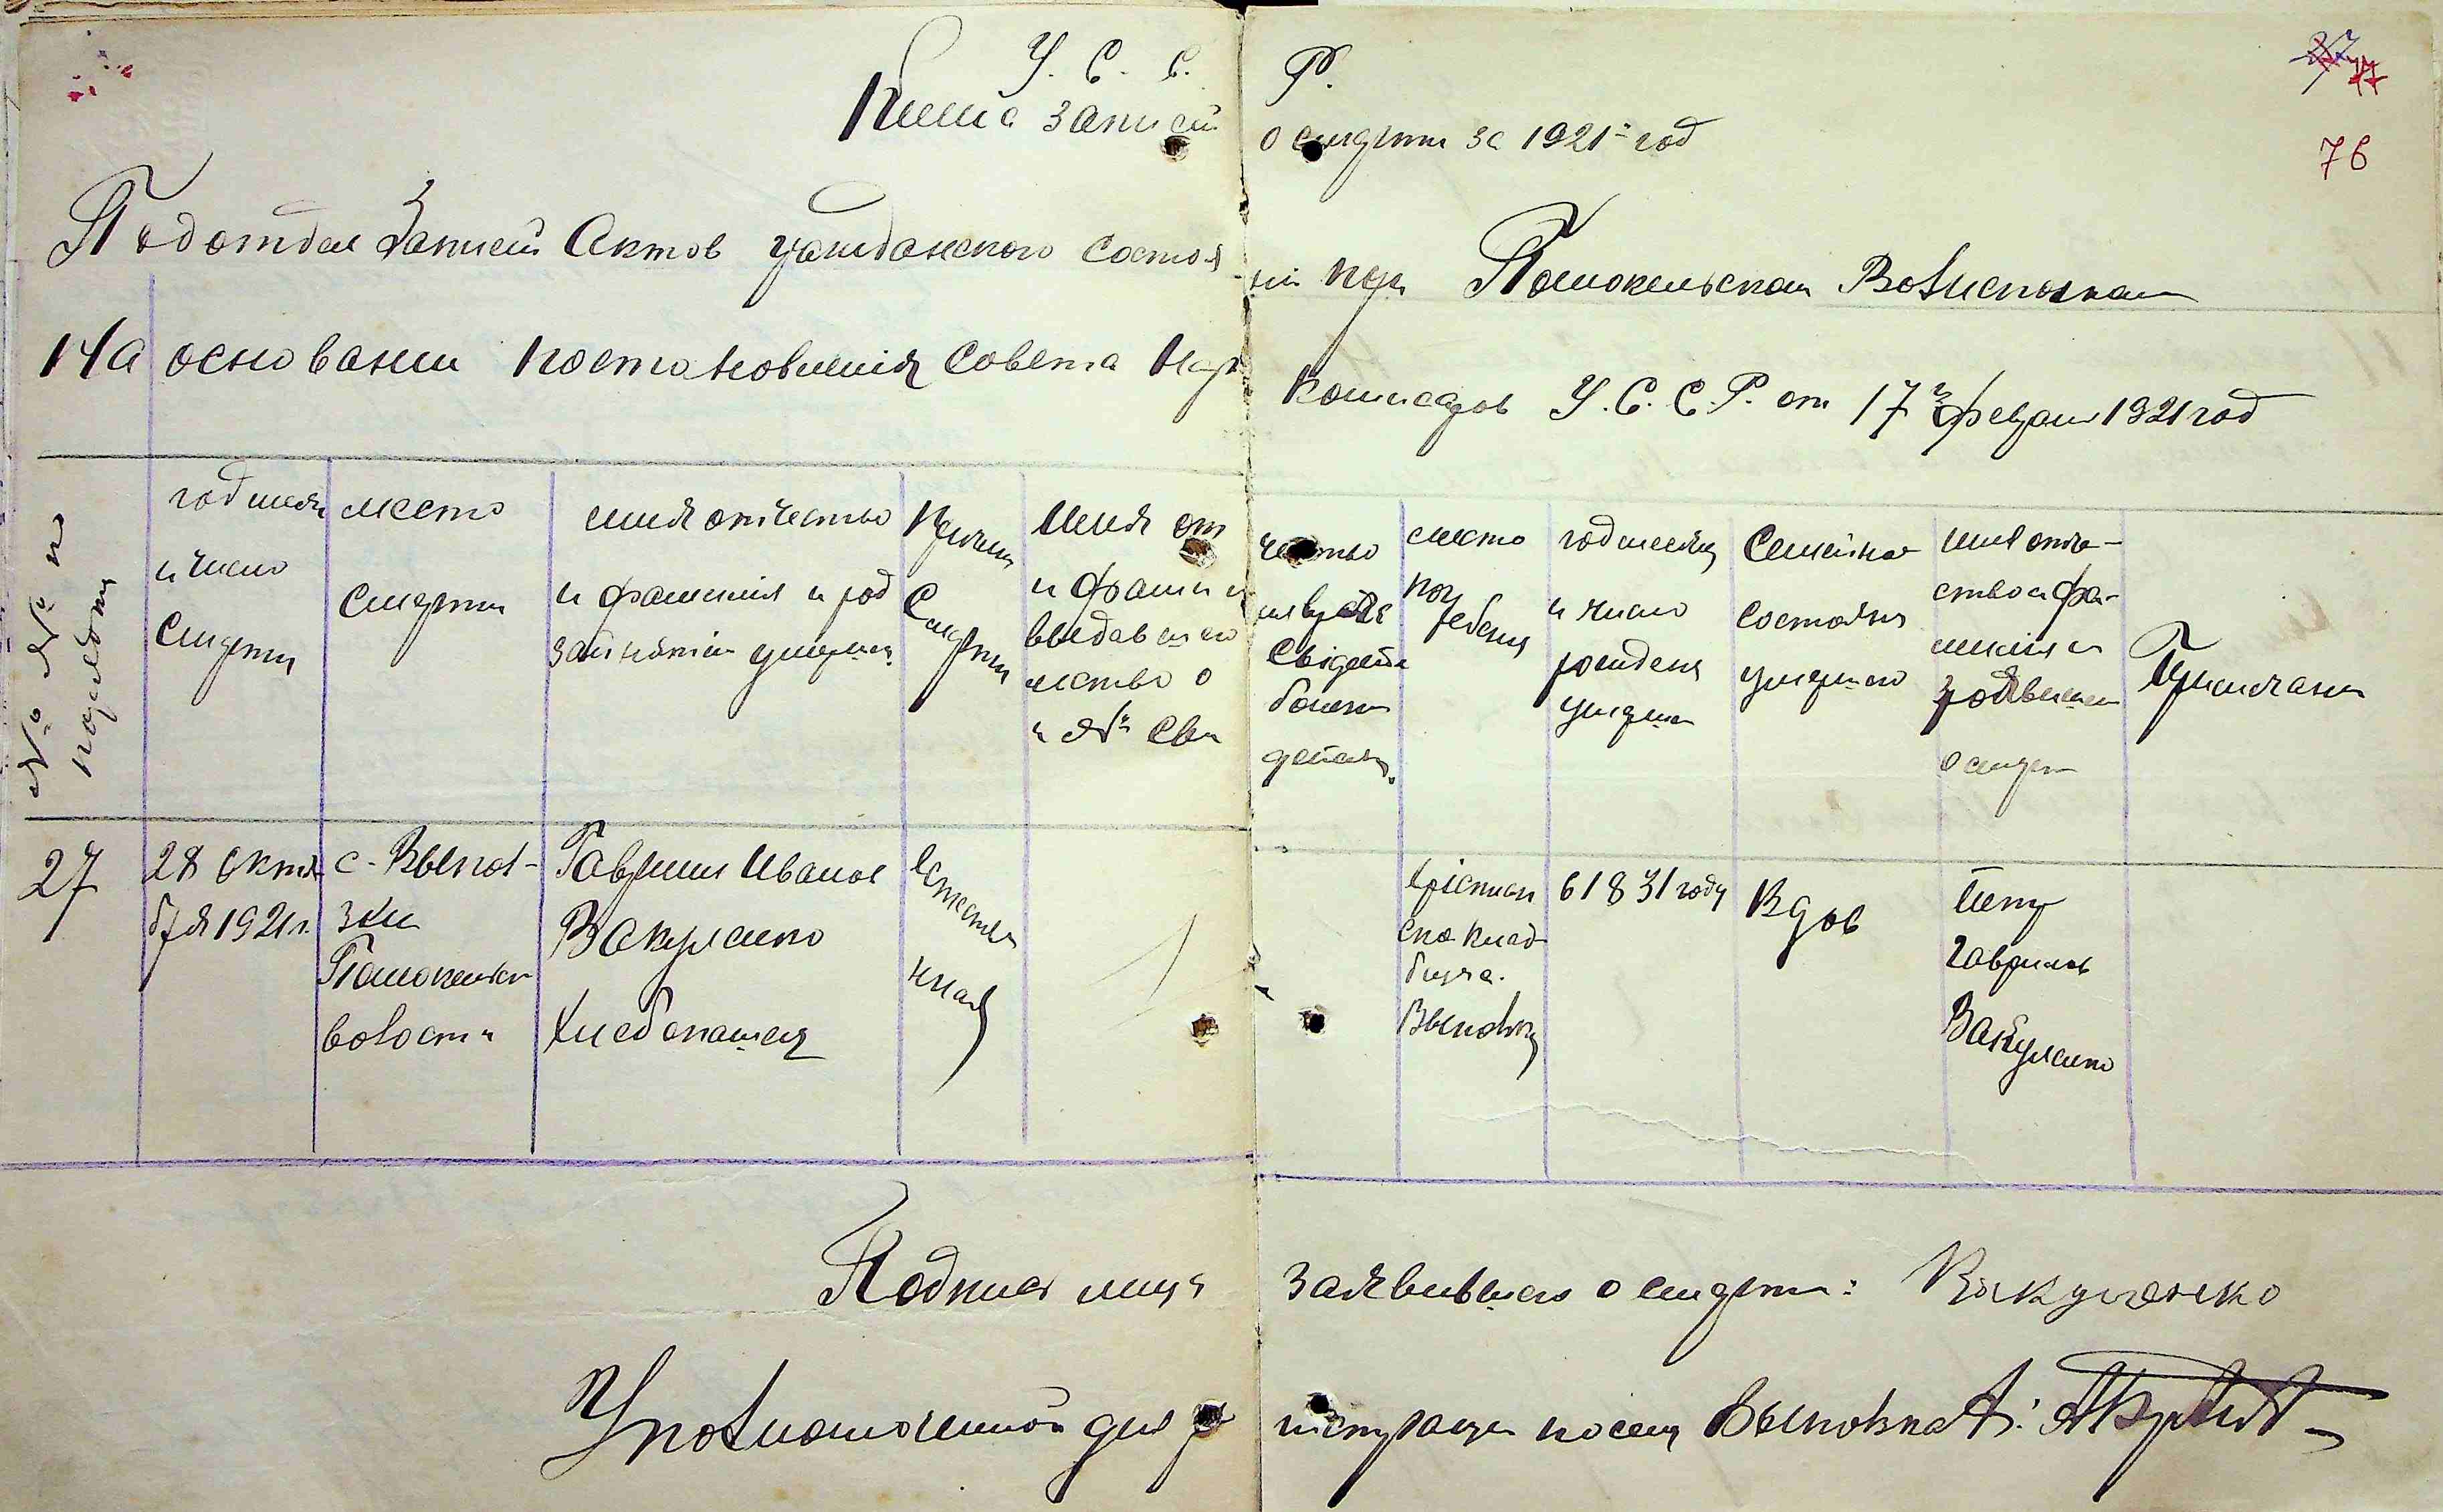 У. С. С. Р.
Книга записей о смерти за 1921 год
76
Подотдел Записей Актов гражданского состоя ний при Помокельской Волисполкам
На основании постановления Совета Нар Комисаров У.С.С.Р. от 17го февраля 1921 год
№ № по порядку
год месяц и число смерти
место смерти
имя отчество и фамилия и род занятий умерш.
Причин Смерти
Имя от чество и фамил
выдавшего свидет
о болезни
и № Сви детель.
место погребения
год месяц и число рожденя умерш
Семейное состояния умершего
имя отче-
ство и фа-
милия
заявивш
о смерт
Примечани
27
28 октя
бря 1921 г.
с. Выпол-
зки
волости
Гаврил Иванов
Вакуленко
Хлебопашец
Естествен
ная
хрістиан
ско клад
бище
Выползки
в 1831 году
Вдов
Петр
Гаврилов
Вакуленко
Подпись лица заявившего о смерти: Вакуленко
Уполномоченной для регистрации по селу Выползка